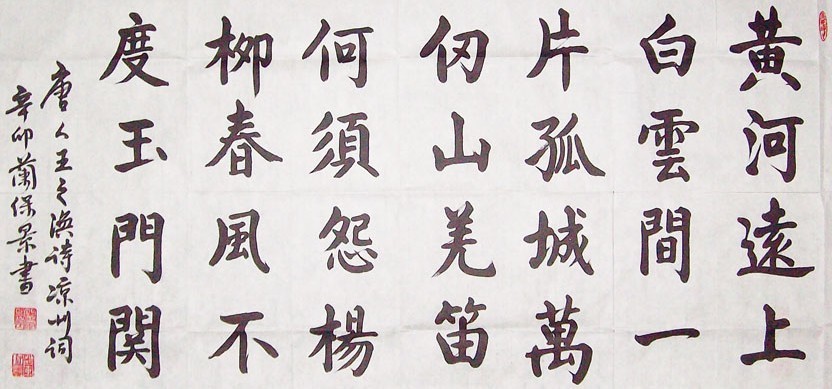 黄河遠上
白雲間一
片孤城萬
仞山羌笛
何須怨楊
柳春風不
度玉門関
唐人王之渙詩凉州词
辛卯蘭保景書